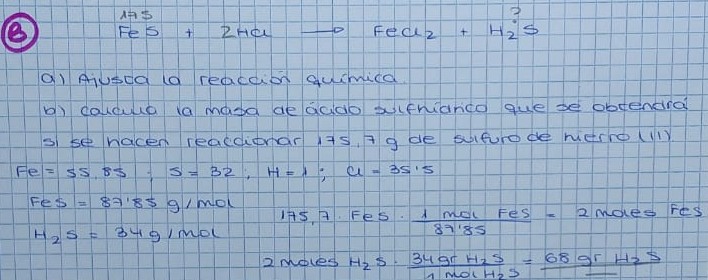 175 ?
B FeS + 2HCl → FeCl2 + H2S
a) Ajusta la reacción química.
b) calcula la masa de ácido sulfhídrico que se obtendrá
si se hacen reaccionar 175,7 g de sulfuro de hierro (II)
Fe = 55,85 ; S = 32 , H = 1 ; Cl = 35'5
FeS = 87'85 g/mol
175,7 FeS · 1 mol FeS / 87'85 = 2 moles FeS
H2S = 34 g/mol
2 moles H2S · 34 gr H2S / 1 mol H2S = 68 gr H2S